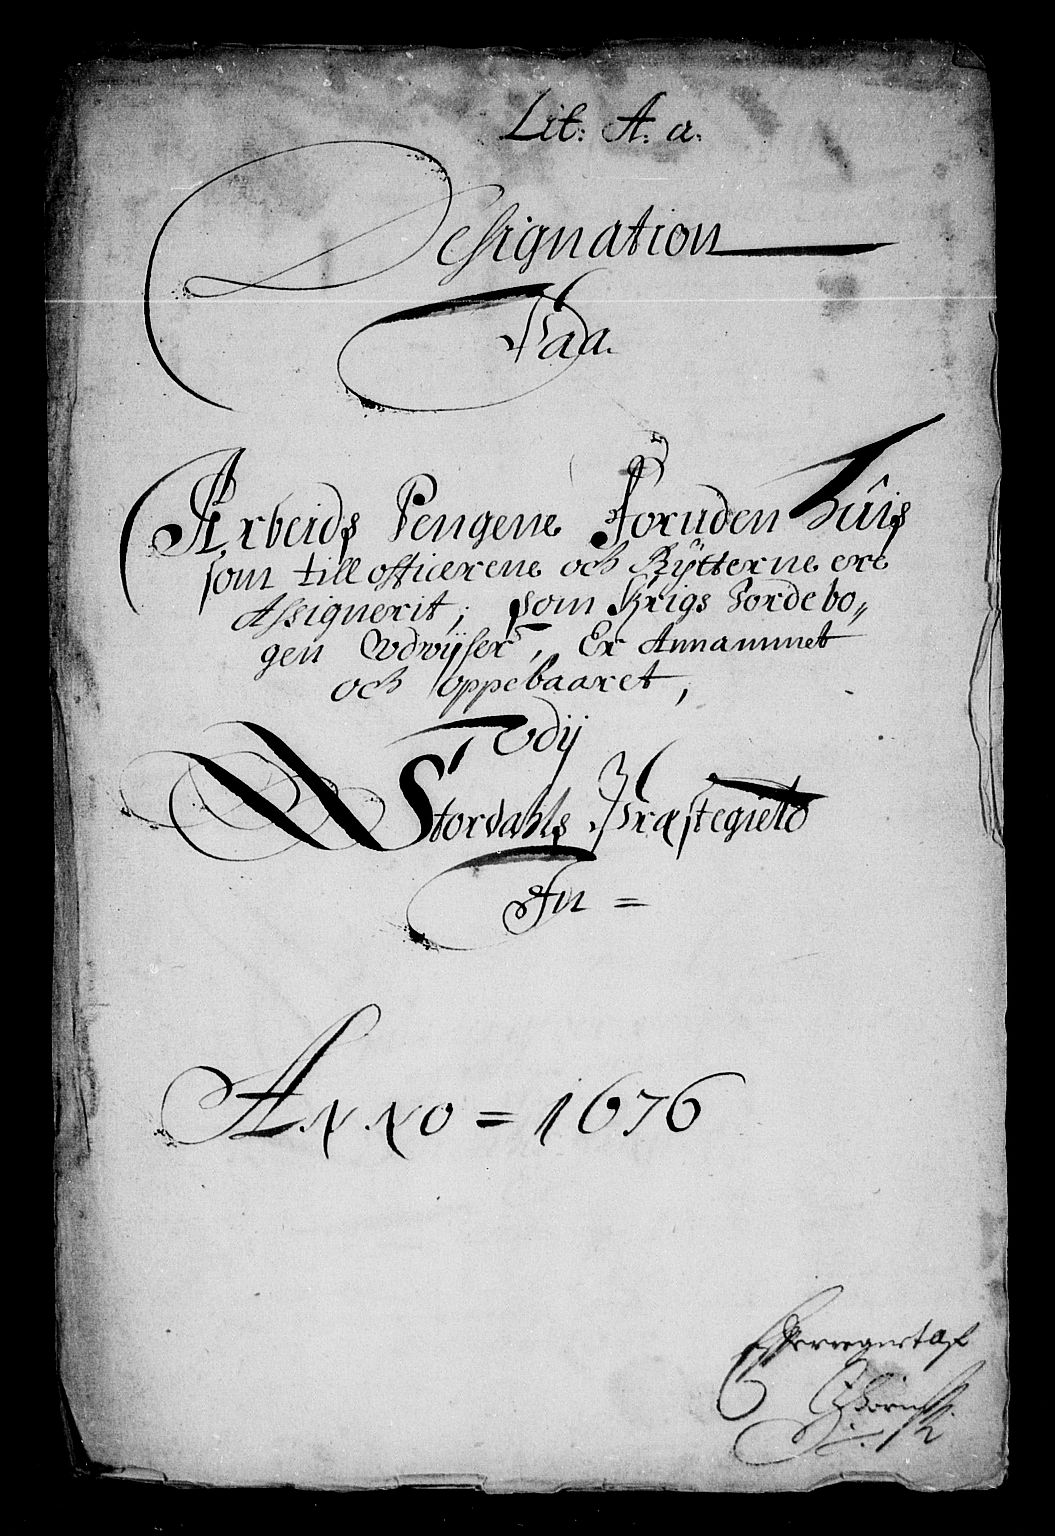 Lit: A. a.
Designation
Paa
Arbeids Pengene Foruden huis
som till officerene och Rÿtterne ere
Assignerit; som Krigs Jordebo„
gen Udvÿser, Er Annammet
och oppebaaret,
Udÿ
Stordahls Præstegield
In =
Anno = 1676
Efterregnet af